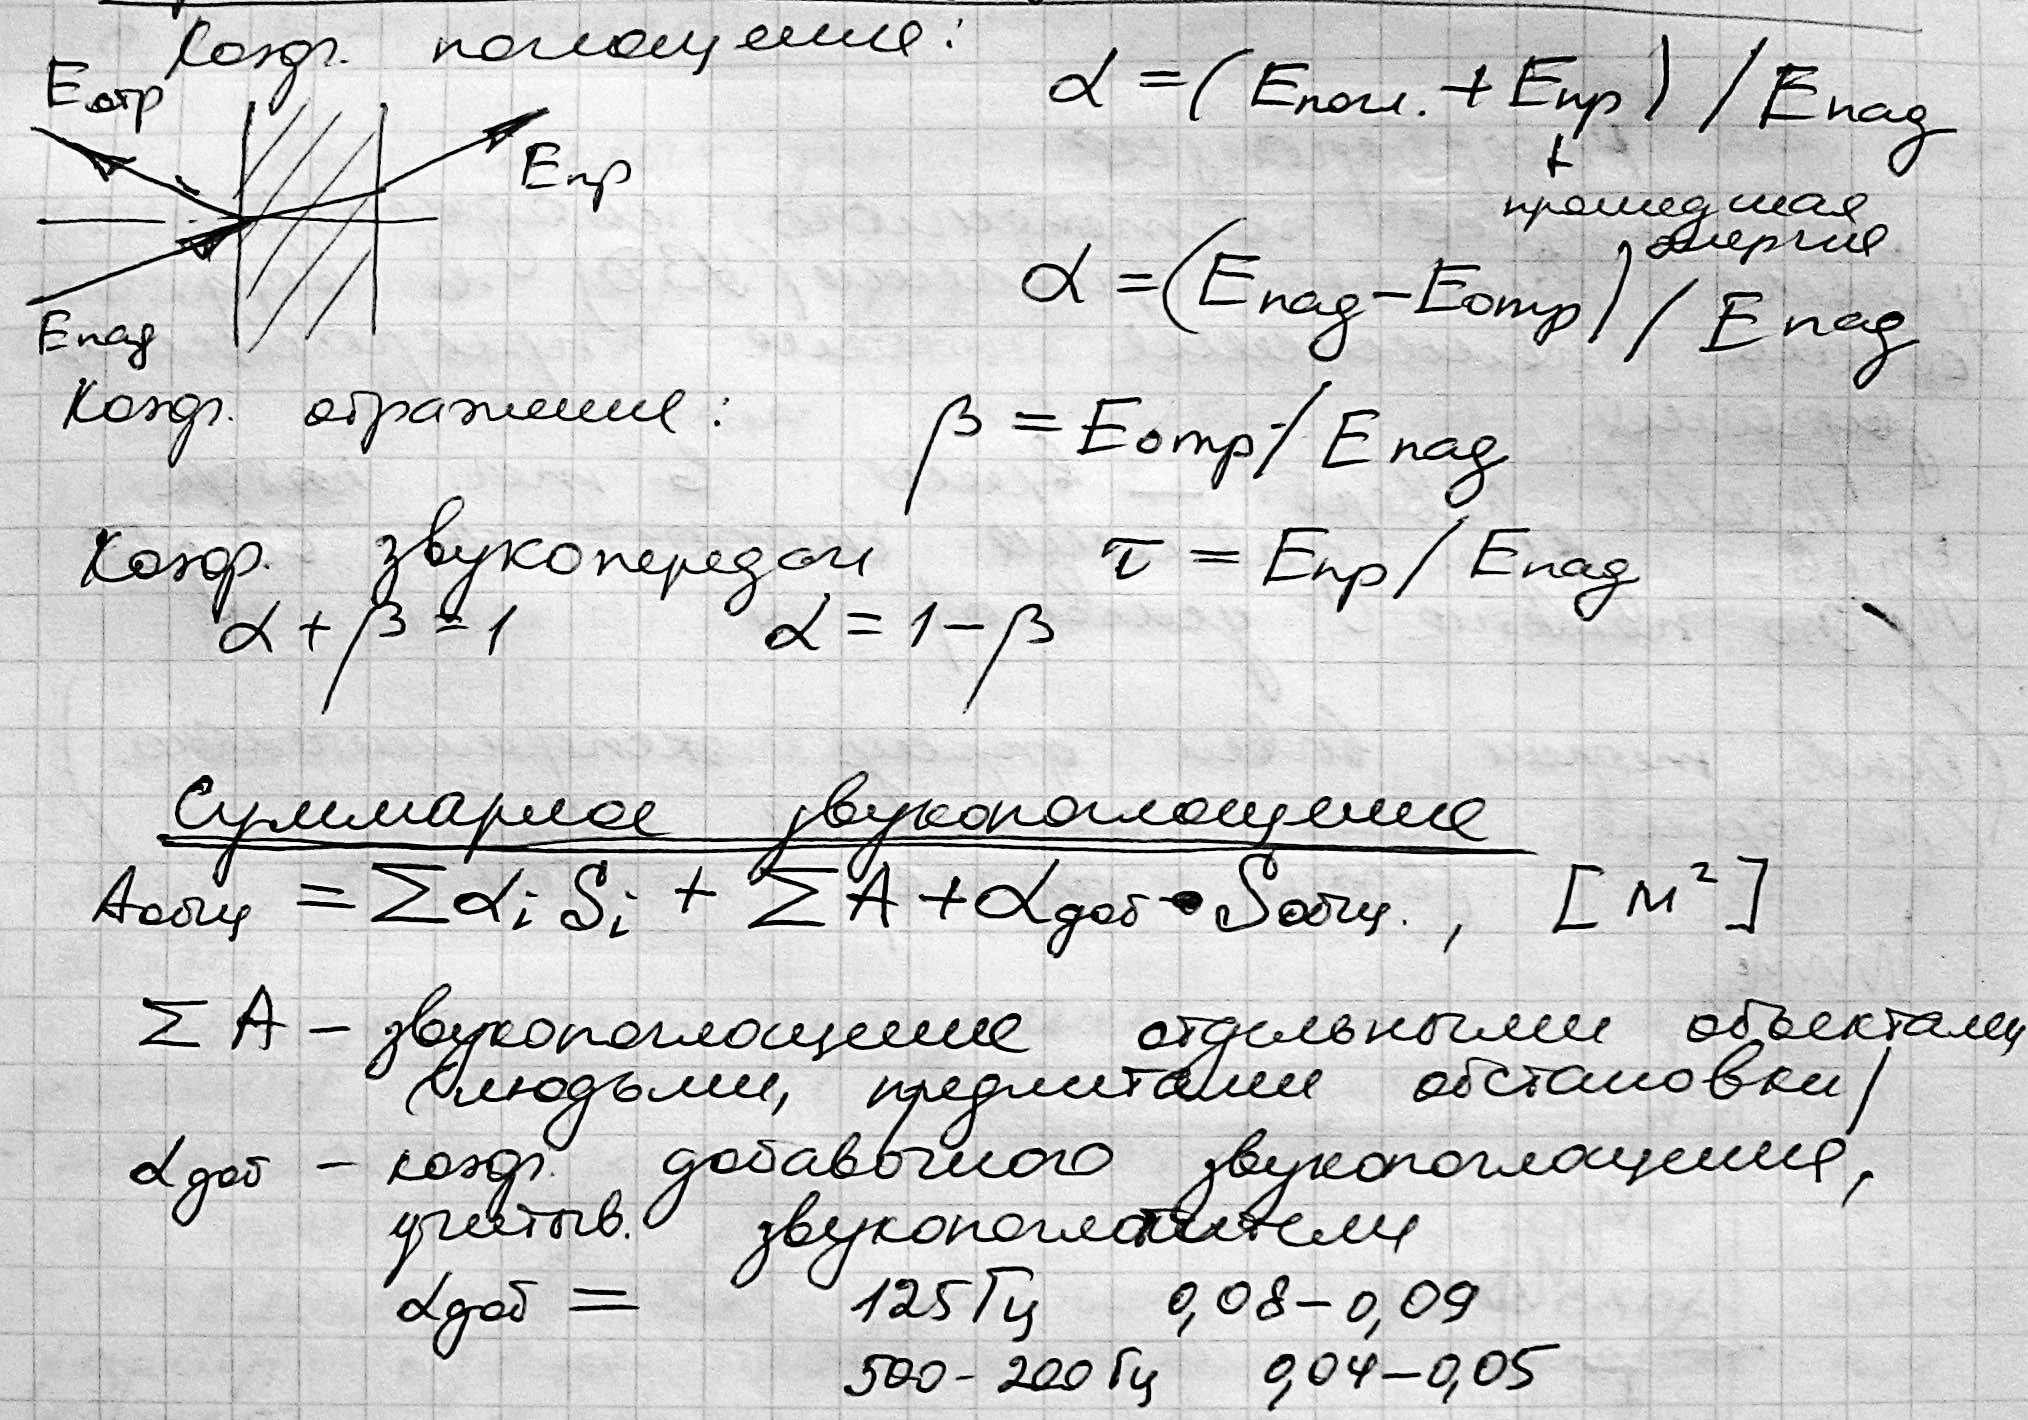 Коэф. поглощения:
α = (Eпогл. + Eпр) / Eпад
Eотр
Eпр
прошедшая
энергия
α = (Eпад - Eотр) / Eпад
Eпад
Коэф. отражения:
β = Eотр / Eпад
Коэф. звукопередачи
τ = Eпр / Eпад
α + β = 1
α = 1 - β
Суммарное звукопоглощение
Aобщ = ΣαiSi + ΣA + αдоб • Sобщ. , [м²]
ΣA – звукопоглощение отдельными объектами
(людьми, предметами обстановки)
αдоб – коэф. добавочного звукопоглощения,
учитыв. звукопоглотители
αдоб = 125 Гц 0,08 – 0,09
500 - 200 Гц 0,04 – 0,05